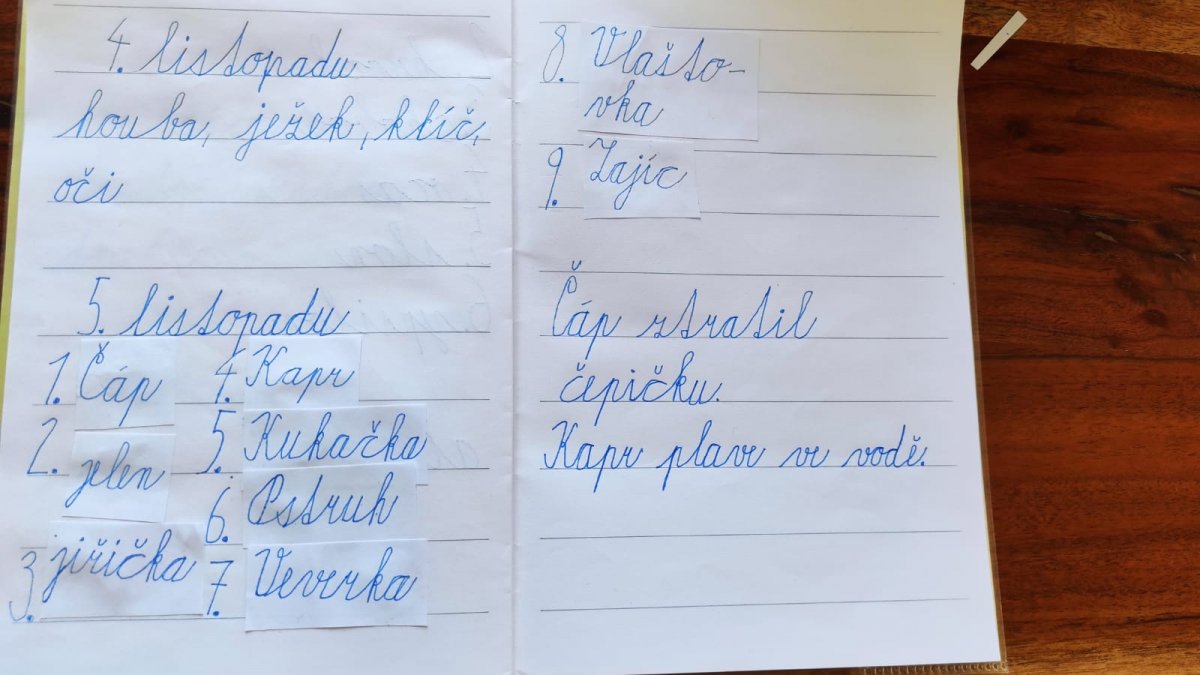 4. listopadu
houba, ježek, klíč,
oči
5. listopadu
1. Čáp
2. jelen
3. jiřička
4. Kapr
5. Kukačka
6. Pstruh
7. Veverka
8. Vlašto-
vka
9. Zajíc
Čáp ztratil
čepičku.
Kapr plave ve vodě.